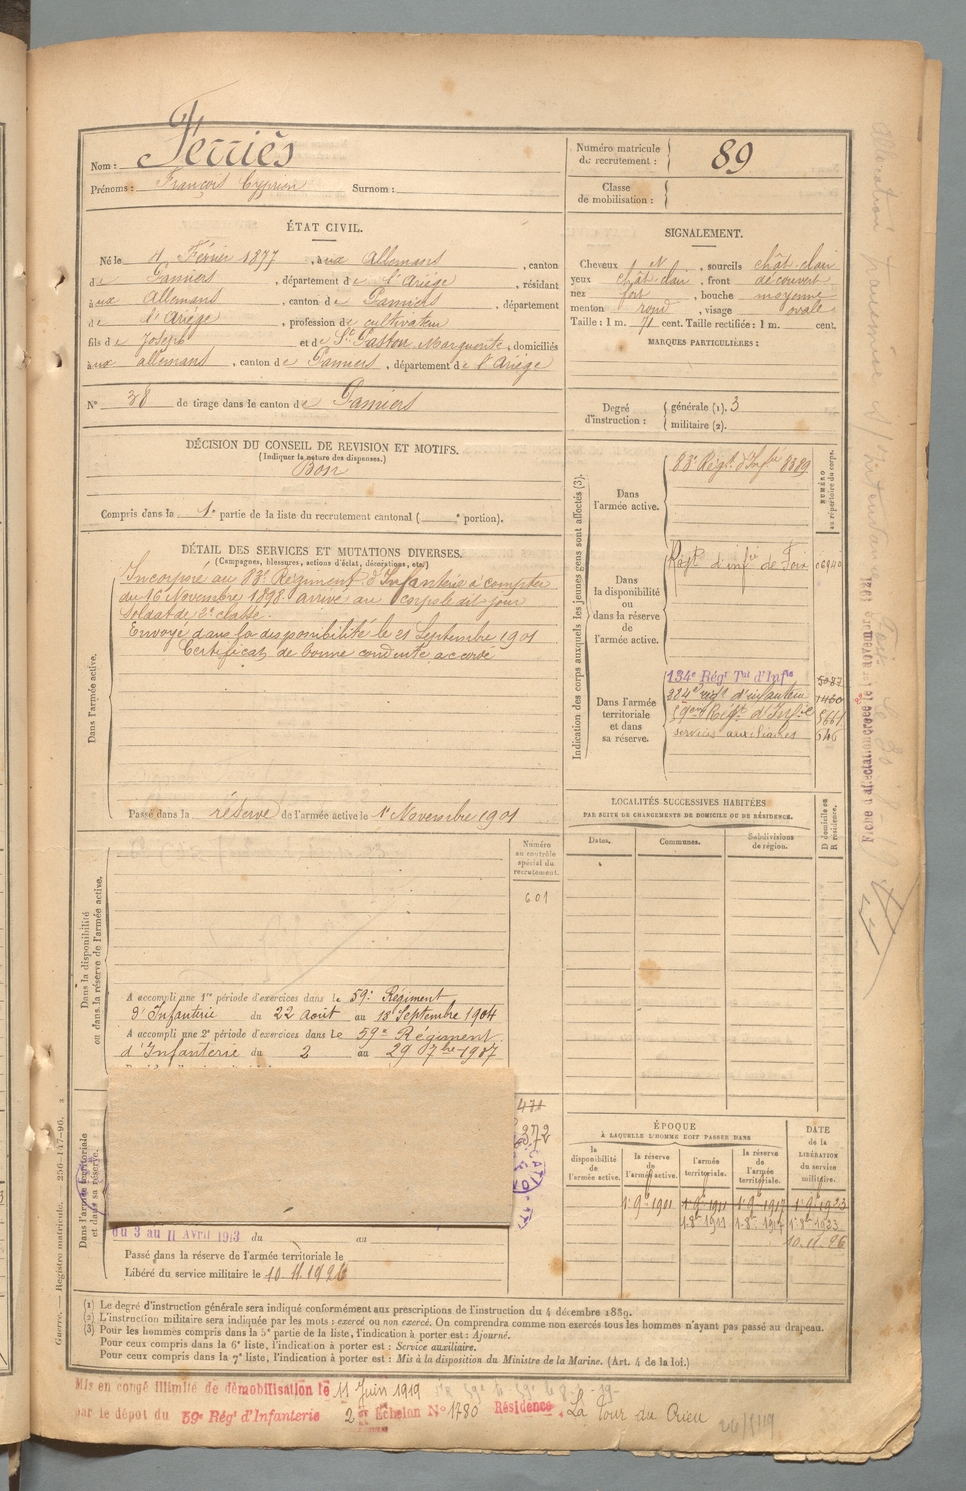 Nom : Ferriès
Prénoms : François Cyprien Surnom :
Numéro matricule de recrutement : 89
Classe de mobilisation :
ÉTAT CIVIL.
Né le Février 1877, à ux Allemans, canton
de Pamiers, département de l'Ariège, résidant
à ux Allemans, canton de Pamiers, département
de l'Ariège, profession de cultivateur
fils de Joseph et de St Gaston Marguerite, domiciliés
à ux allemans, canton de Pamiers, département de l'Ariège
N° 38 de tirage dans le canton de Pamiers
SIGNALEMENT.
Cheveux N, sourcils chât. clair
yeux chât clair, front découvert
nez fort, bouche moyenne
menton rond, visage ovale
Taille : 1 m. 71 cent. Taille rectifiée : 1 m. cent.
MARQUES PARTICULIÈRES :
Degré d'instruction : générale (1). 3
militaire (2).
DÉCISION DU CONSEIL DE REVISION ET MOTIFS.
(Indiquer la nature des dispenses.)
Bon
Compris dans la 1e partie de la liste du recrutement cantonal ( e portion).
DÉTAIL DES SERVICES ET MUTATIONS DIVERSES.
(Campagnes, blessures, actions d'éclat, décorations, etc.)
Dans l'armée active.
Incorporé au 83e Régiment d'Infanterie à compter
du 16 Novembre 1898. arrivé au corps le dit jour
soldat de 2e classe.
Envoyé dans la disponibilité le 21 Septembre 1901
Certificat de bonne conduite accordé
Passé dans la réserve de l'armée active le 1er Novembre 1901
Indication des corps auxquels les jeunes gens sont affectés (3).
NUMÉRO au répertoire du corps.
Dans l'armée active.
83e Régt. d'Infie 8389
Dans la disponibilité ou dans la réserve de l'armée active.
Régt d'infie de Foix 06940
Dans l'armée territoriale et dans sa réserve.
134e Régt Tal d'Infie
224e régt d'infanterie
59eme Régt. d'Infie 5661
services auxiliaires 646
LOCALITÉS SUCCESSIVES HABITÉES
PAR SUITE DE CHANGEMENTS DE DOMICILE OU DE RÉSIDENCE.
Dates.
Communes.
Subdivisions de région.
D domicile ou R résidence.
Dans la disponibilité ou dans la réserve de l'armée active.
Numéro au contrôle spécial du recrutement.
601
A accompli une 1re période d'exercices dans le 59e Régiment
d'Infanterie du 22 août au 18 Septembre 1904
A accompli une 2e période d'exercices dans le 59e Régiment
d'Infanterie du 2 au 29 7bre 1907
Dans l'armée territoriale et dans sa réserve.
471
372
du 3 au 11 Avril 1913 du au
Passé dans la réserve de l'armée territoriale le
Libéré du service militaire le 10.11.1926
ÉPOQUE
À LAQUELLE L'HOMME DOIT PASSER DANS
la disponibilité de l'armée active.
la réserve de l'armée active.
l'armée territoriale.
la réserve de l'armée territoriale.
DATE de la LIBÉRATION du service militaire.
1er 9bre 1901
1er 9bre 1911
1er 9bre 1917
1er 9bre 1923
1.8bre 1911
1.8bre 1917
1.8bre 1923
10.11.26
(1) Le degré d'instruction générale sera indiqué conformément aux prescriptions de l'instruction du 4 décembre 1889.
(2) L'instruction militaire sera indiquée par les mots : exercé ou non exercé. On comprendra comme non exercés tous les hommes n'ayant pas passé au drapeau.
(3) Pour les hommes compris dans la 5e partie de la liste, l'indication à porter est : Ajourné.
Pour ceux compris dans la 6e liste, l'indication à porter est : Service auxiliaire.
Pour ceux compris dans la 7e liste, l'indication à porter est : Mis à la disposition du Ministre de la Marine. (Art. 4 de la loi.)
Mis en congé illimité de démobilisation le 11 Juin 1919
par le dépôt du 59e Régt d'Infanterie 2e Échelon N° 1780 Résidence. La Tour du Crieu
Guerre. — Registre matricule. — 256-147-96.